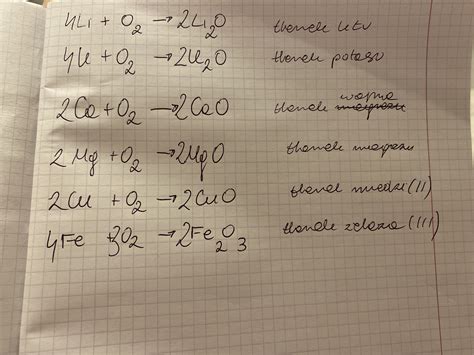 4Li + O₂ → 2Li₂O tlenek litu
4K + O₂ → 2K₂O tlenek potasu
2Ca + O₂ → 2CaO tlenek wapnia
2Mg + O₂ → 2MgO tlenek magnezu
2Cu + O₂ → 2CuO tlenek miedzi (II)
4Fe + 3O₂ → 2Fe₂O₃ tlenek żelaza (III)